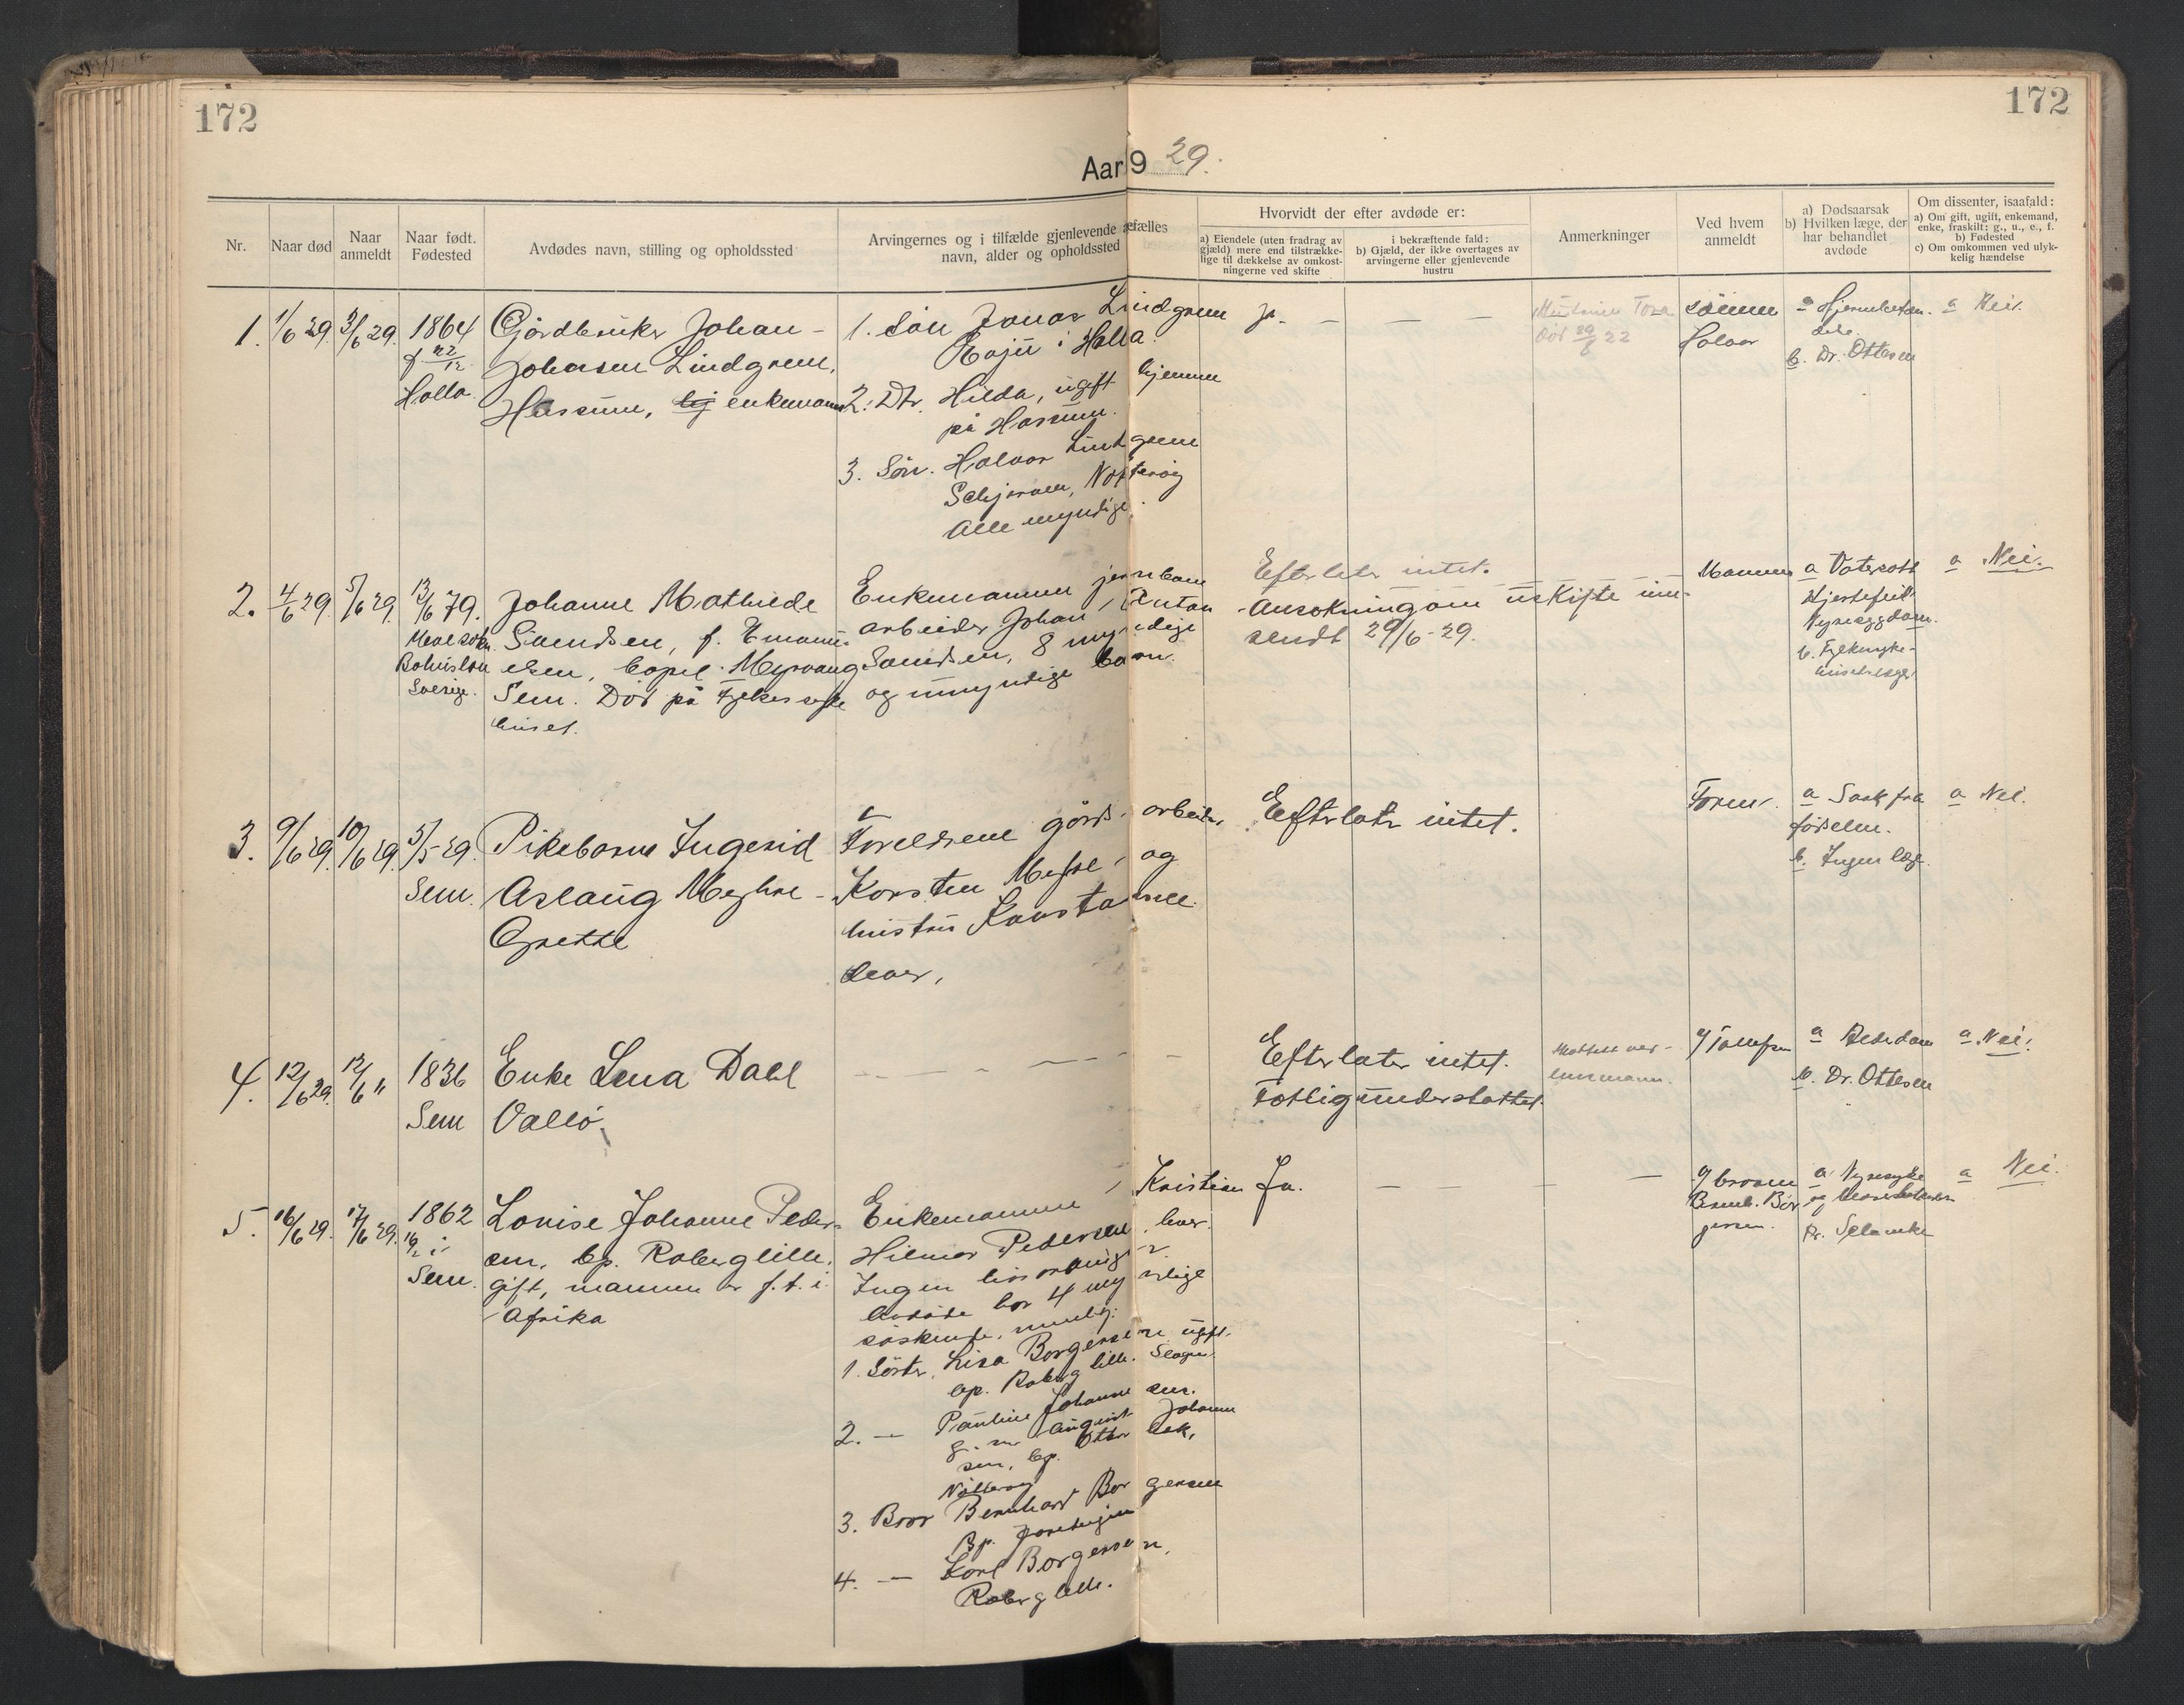 172
172
Aar 9 29.
Nr.
Naar død
Naar anmeldt
Naar født. Fødested
Avdødes navn, stilling og opholdssted
Arvingernes og i tilfælde gjenlevende æfælles
navn, alder og opholdssted
Hvorvidt der efter avdøde er:
a) Eiendele (uten fradrag av gjæld) mere end tilstrække-lige til dækkelse av omkost-ningerne ved skifte
i bekræftende fald:
b) Gjæld, der ikke overtages av arvingerne eller gjenlevende hustru
Anmerkninger
Ved hvem anmeldt
a) Dødsaarsak
b) Hvilken læge, der har behandlet avdøde
Om dissenter, isaafald:
a) Om gift, ugift, enkemand, enke, fraskilt: g., u., e., f.
b) Fødested
c) Om omkommen ved ulyk-kelig hændelse
1. 1/6 29. 3/6 29. 1864
f. 22/12
Holla
Gårdbruker Johan
Johansen Lindgren,
Hassum, enkemann
1. Søn Jonas Lindgren
i Holla.
2. Dtr. Hilda, ugift hjemme
på Hassum.
3. Søn. Halvor Lindgren
Nøtterøy
Alle myndige.
Ja. — — —
død 30/6 22
sønnen
Halvor
a
b. Dr. Ottesen
a Nei.
2. 4/6 29. 5/6 29. 13/6 79.
Sverige.
Johanne Mathilde
Samdsen, f. Emanu-
elsen, bopel Myrvang
Sem. Død på Fylkessyke
huset.
Enkemannen jernbane
arbeider Johan Anton
Samdsen, 8 myndige
og umyndige barn.
Efterlater intet.
Ansøkning om uskifte inn-
sendt 29/6-29.
Mannen
a Vatersott
Hjertefeil
b. Fylkessyke-
huset
a Nei.
3. 9/6 29. 10/6 29. 5/5-29
Sem.
Pikebarn Ingerid
Aslaug Meyhre
Grette
Foreldrene gårds-arbeider
Karsten og
hustru Konstanse
lever.
Efterlater intet.
Faren.
a Svak fra
fødselen.
b. Ingen læge.
a Nei.
4. 12/6 29. 12/6 " 1836
Sem
Enke Lena Dahl
Vallø.
Efterlater intet.
Fattigunderstøttet.
a
b. Dr. Ottesen
a Nei.
5. 16/6 29. 17/6 29. 1862
i
Sem.
Louise Johanne Peder-
sen, bp. Roberg lille,
gift, mannen er f. t. i
Afrika
Enkemannen Kristian
Hilmar Pedersen lever.
Ingen livsarvinger.
Avdøde har 4 myndige
søskende, nemlig:
1. Søster, Lisa Borgersen ugift.
bp. Roberg lille. Slagen.
2. — Pauline Johannesen.
August Johannesen
sen, bp.
Nøtterøy
3. Bror Bernhard Borgersen
Bp.
4. — Karl Borgersen,
Roberg lille.
Ja. — — — —
broren
Bernh. Bor-
gersen.
a Nyresyke
og
a Nei.